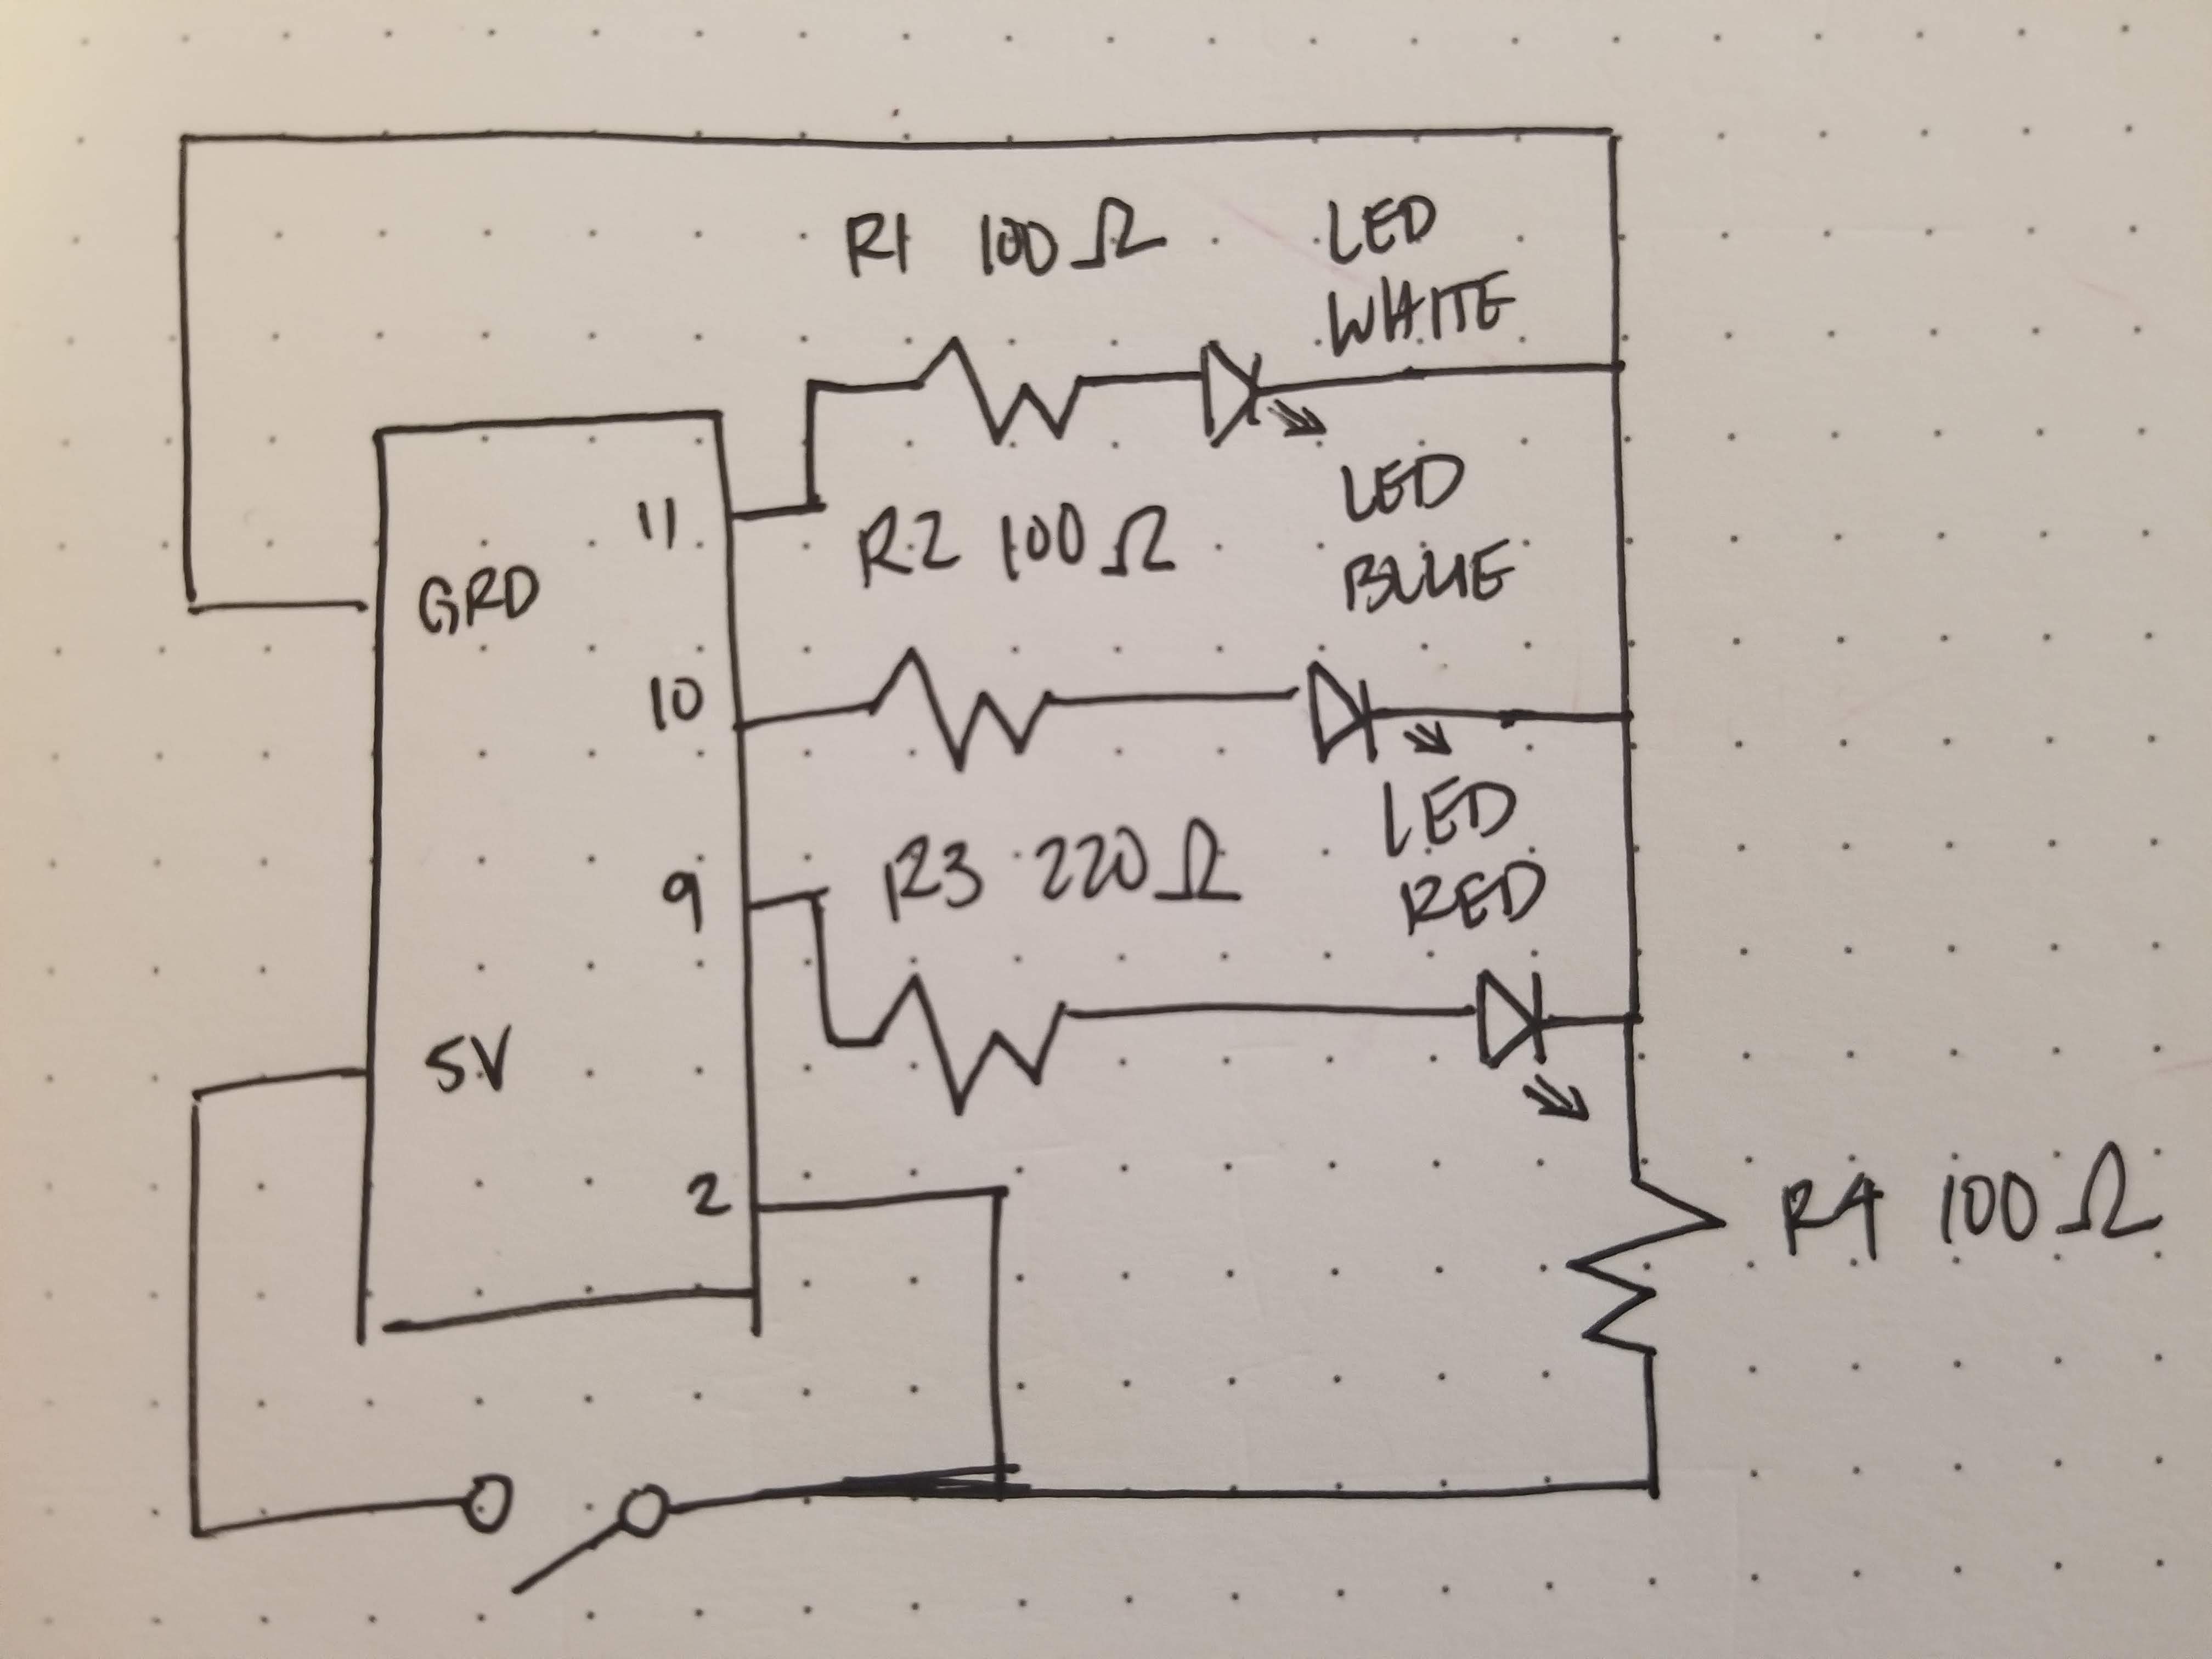 R1 100Ω
LED
WHITE
11
R2 100Ω
LED
BLUE
GRD
10
LED
R3 220Ω
RED
9
5V
2
R4 100Ω